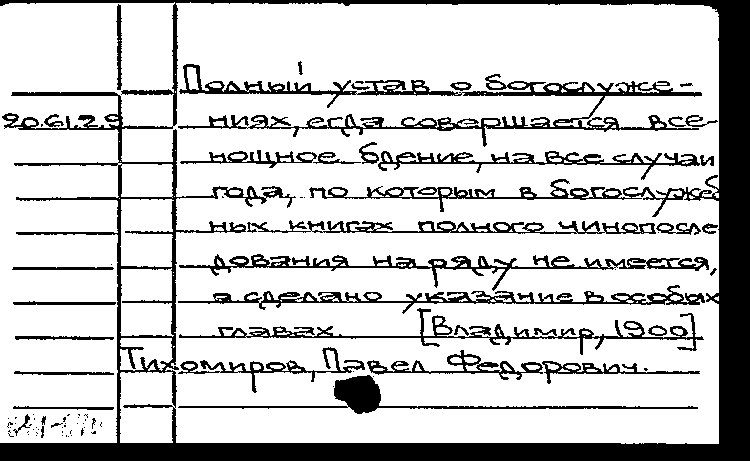 Полный устав о богослуже-
20.61.2.9 ниях, егда совершается все-
нощное бдение, на все случаи
года, по которым в богослужеб
ных книгах полного чинопосле
дования на ряду не имеется,
а сделано указание в особых
главах. [Владимир, 1900]
Тихомиров, Павел Федорович.